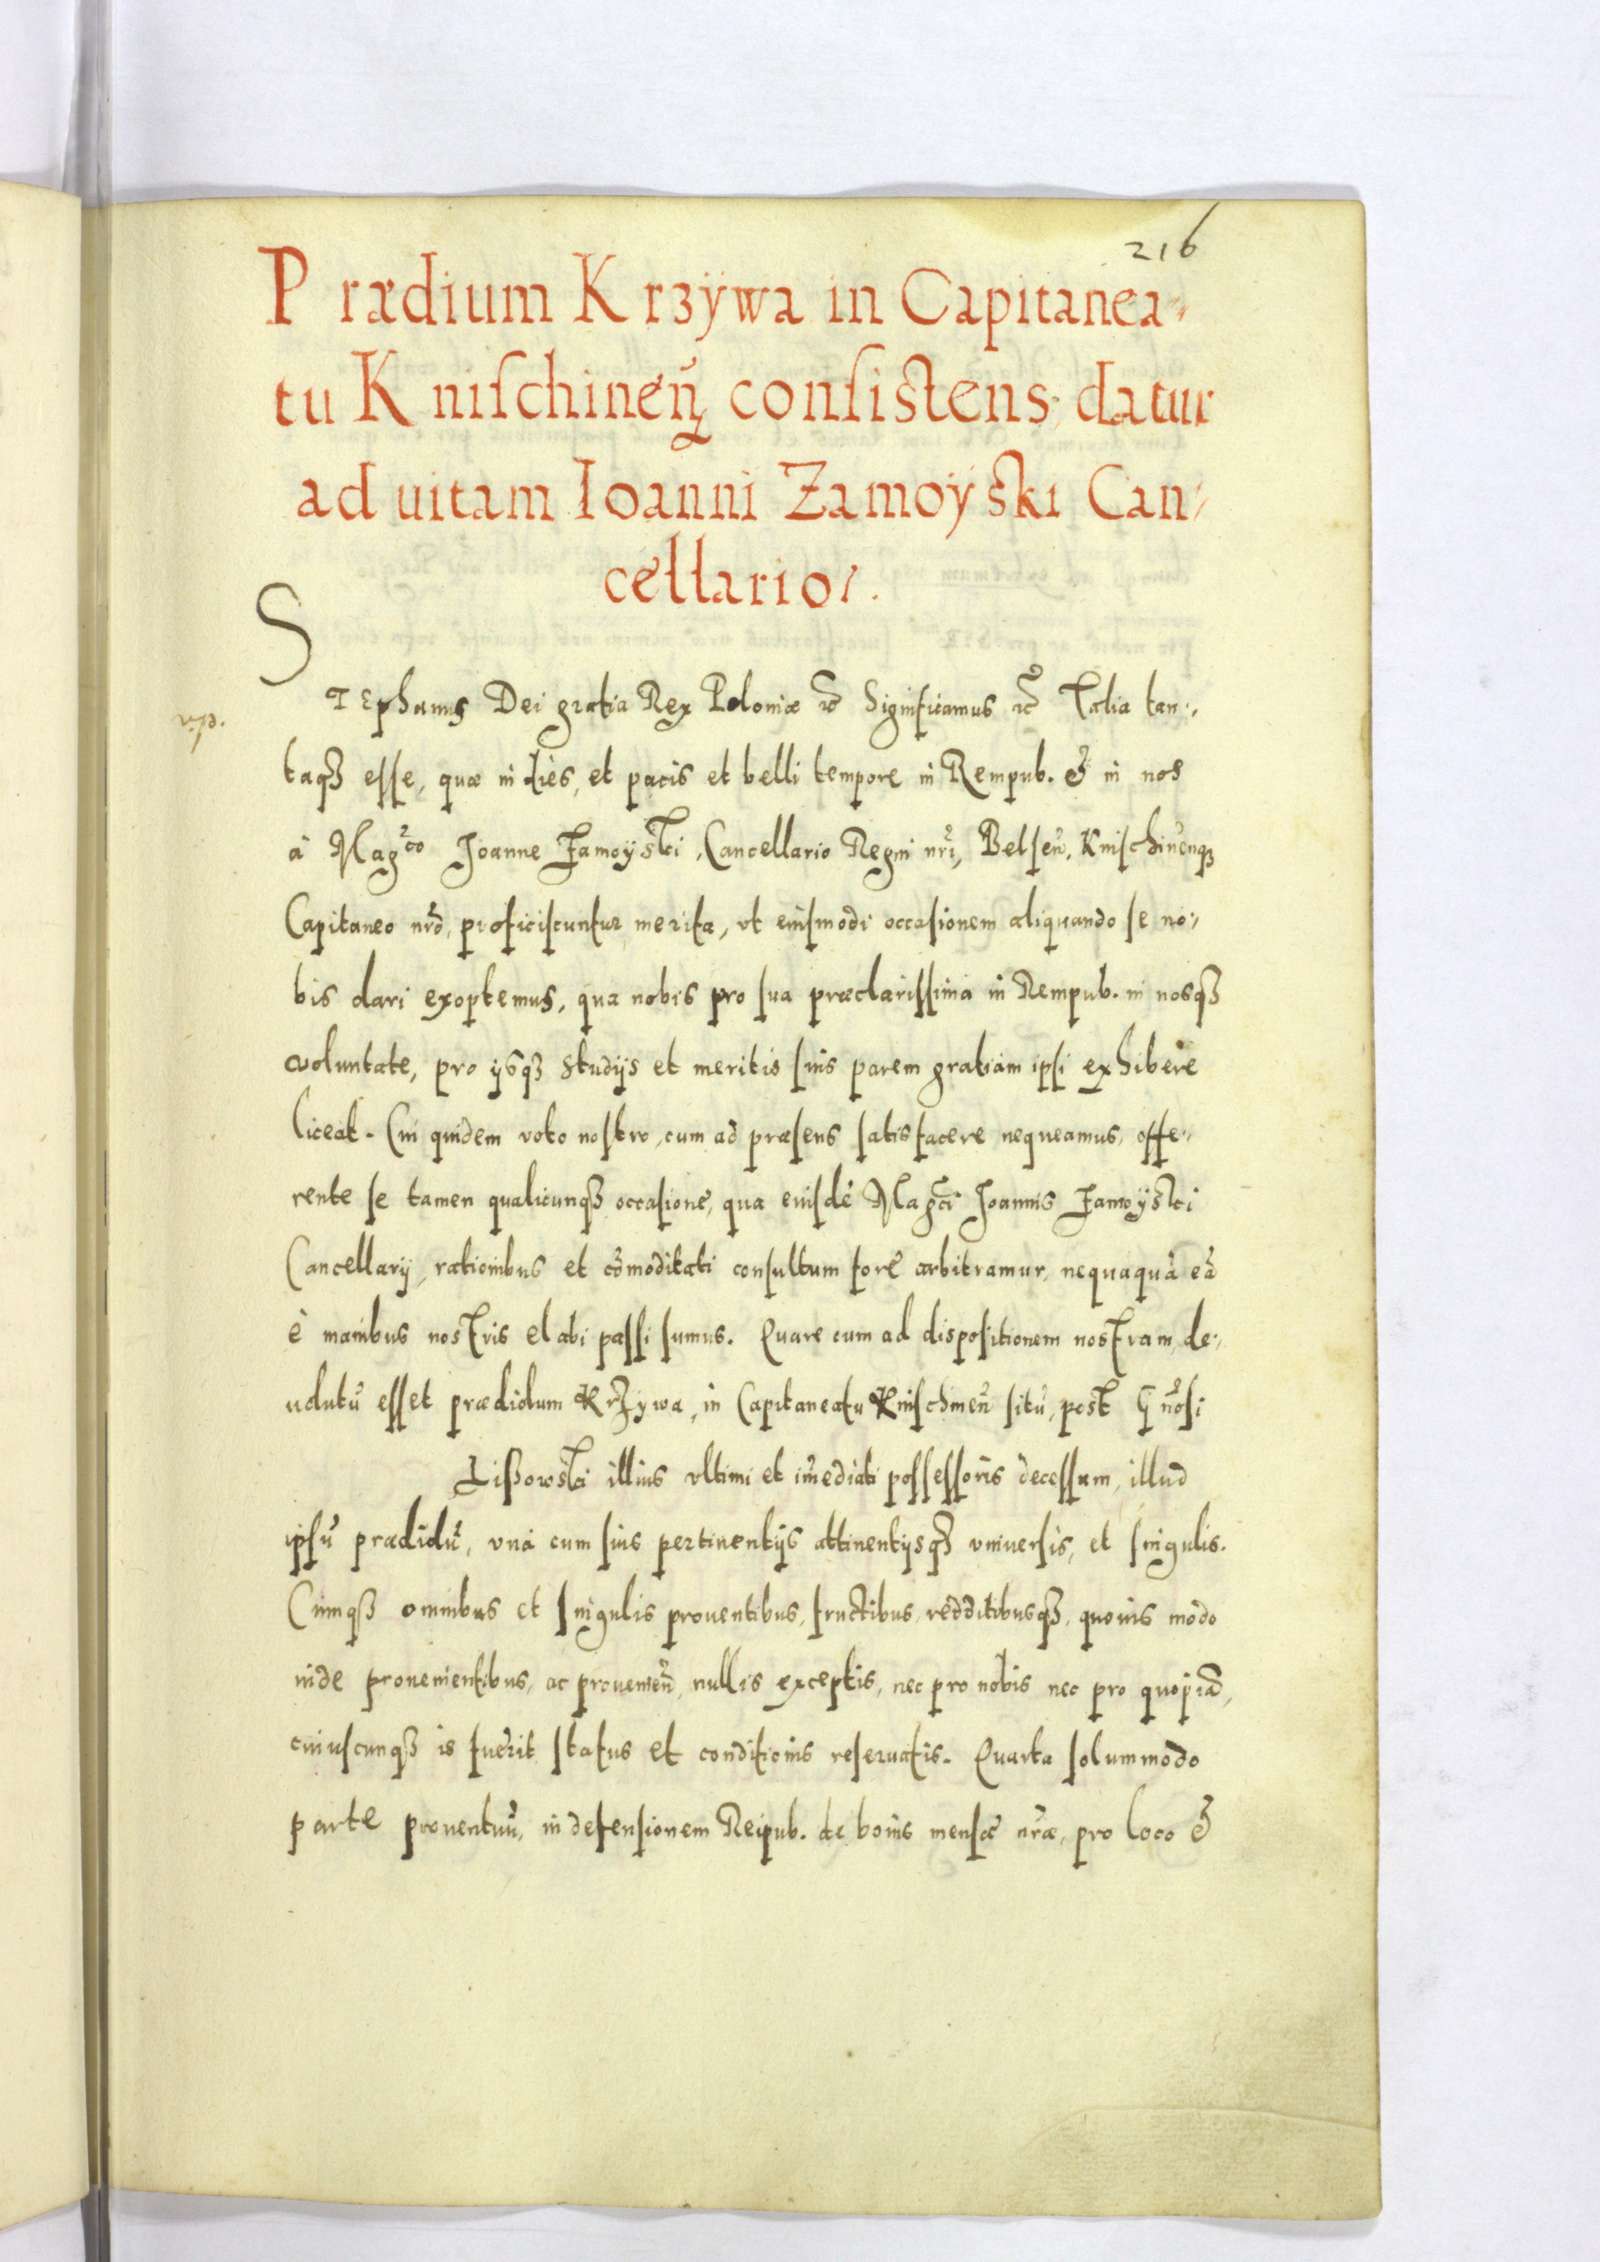 216
Prædium Krzÿwa in Capitanea-
tu Knischineñ consistens, datur
ad uitam Ioanni Zamoÿski Can-
cellario.
STEphanus Dei gratia Rex Poloniæ etc Significamus etc Talia tan-
taq3 esse, quæ in dies, et pacis et belli tempore in Rempub. & in nos
à Mag^co Joanne Zamoÿski, Cancellario Regni nr̃i, Belseñ, Knischinenq3
Capitaneo nr̃o, proficiscuntur merita, vt eiusmodi occasionem aliquando se no-
bis dari exoptemus, qua nobis pro sua præclarissima in Rempub. in nosq3
voluntate, pro ijsq3 studijs et meritis suis parem gratiam ipsi exhibere
liceat. Cui quidem voto nostro, cum ad præsens satisfacere nequeamus, offe-
rente se tamen qualicunq3 occasione, qua eiusdẽ Mag̃ci Joannis Zamoÿski
Cancellarij, rationibus et cõmoditati consultum fore arbitramur, nequaquã eã
è manibus nostris elabi passi sumus. Quare cum ad dispositionem nostram de-
uolutũ esset prædium Krzywa, in Capitaneatu Knischineñ sitũ, post G ñosi
Lißowski illius vltimi et im̃ediati possessoris decessum, illud
ipsũ prædiũ, vnà cum suis pertinentijs attinentijsq3 vniuersis, et singulis.
Cumq3 omnibus et singulis prouentibus, fructibus, redditibusq3, quouis modo
inde prouenientibus, ac prouenieñ, nullis exceptis, nec pro nobis nec pro quopiã,
cuiuscunq3 is fuerit status et conditionis reseruatis. Quarta solummodo
parte prouentuũ, in defensionem Reipub. de bonis mensæ nr̃æ, pro loco &